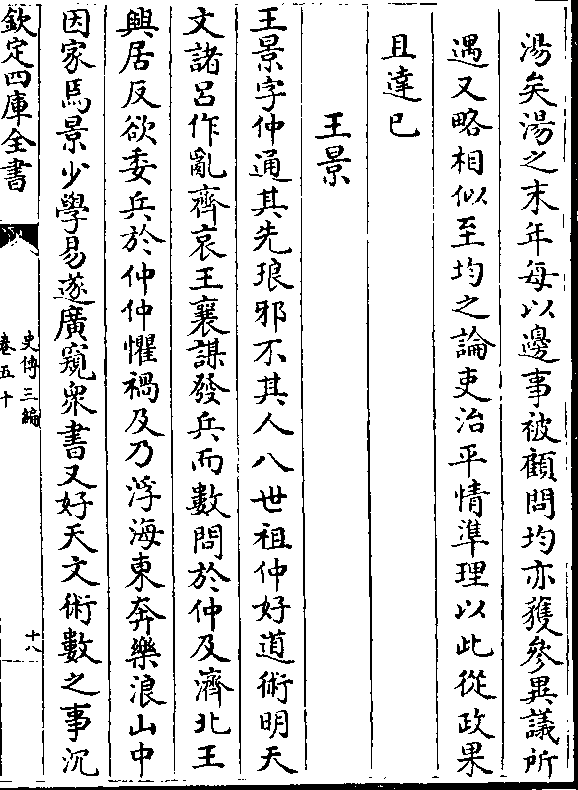 湯矣湯之末年每以邊事被顧問均亦獲參異議所
遇又略相似至均之論吏治平情準理以此從政果
且達已
王景
王景字仲通其先琅邪不其人八世祖仲好道術明天
文諸呂作亂齊哀王襄謀發兵而數問於仲及濟北王
興居反欲委兵於仲仲懼禍及乃浮海東奔樂浪山中
因家焉景少學易遂廣窺衆書又好天文術數之事沉
欽定四庫全書
史傳三編
卷五十
十八